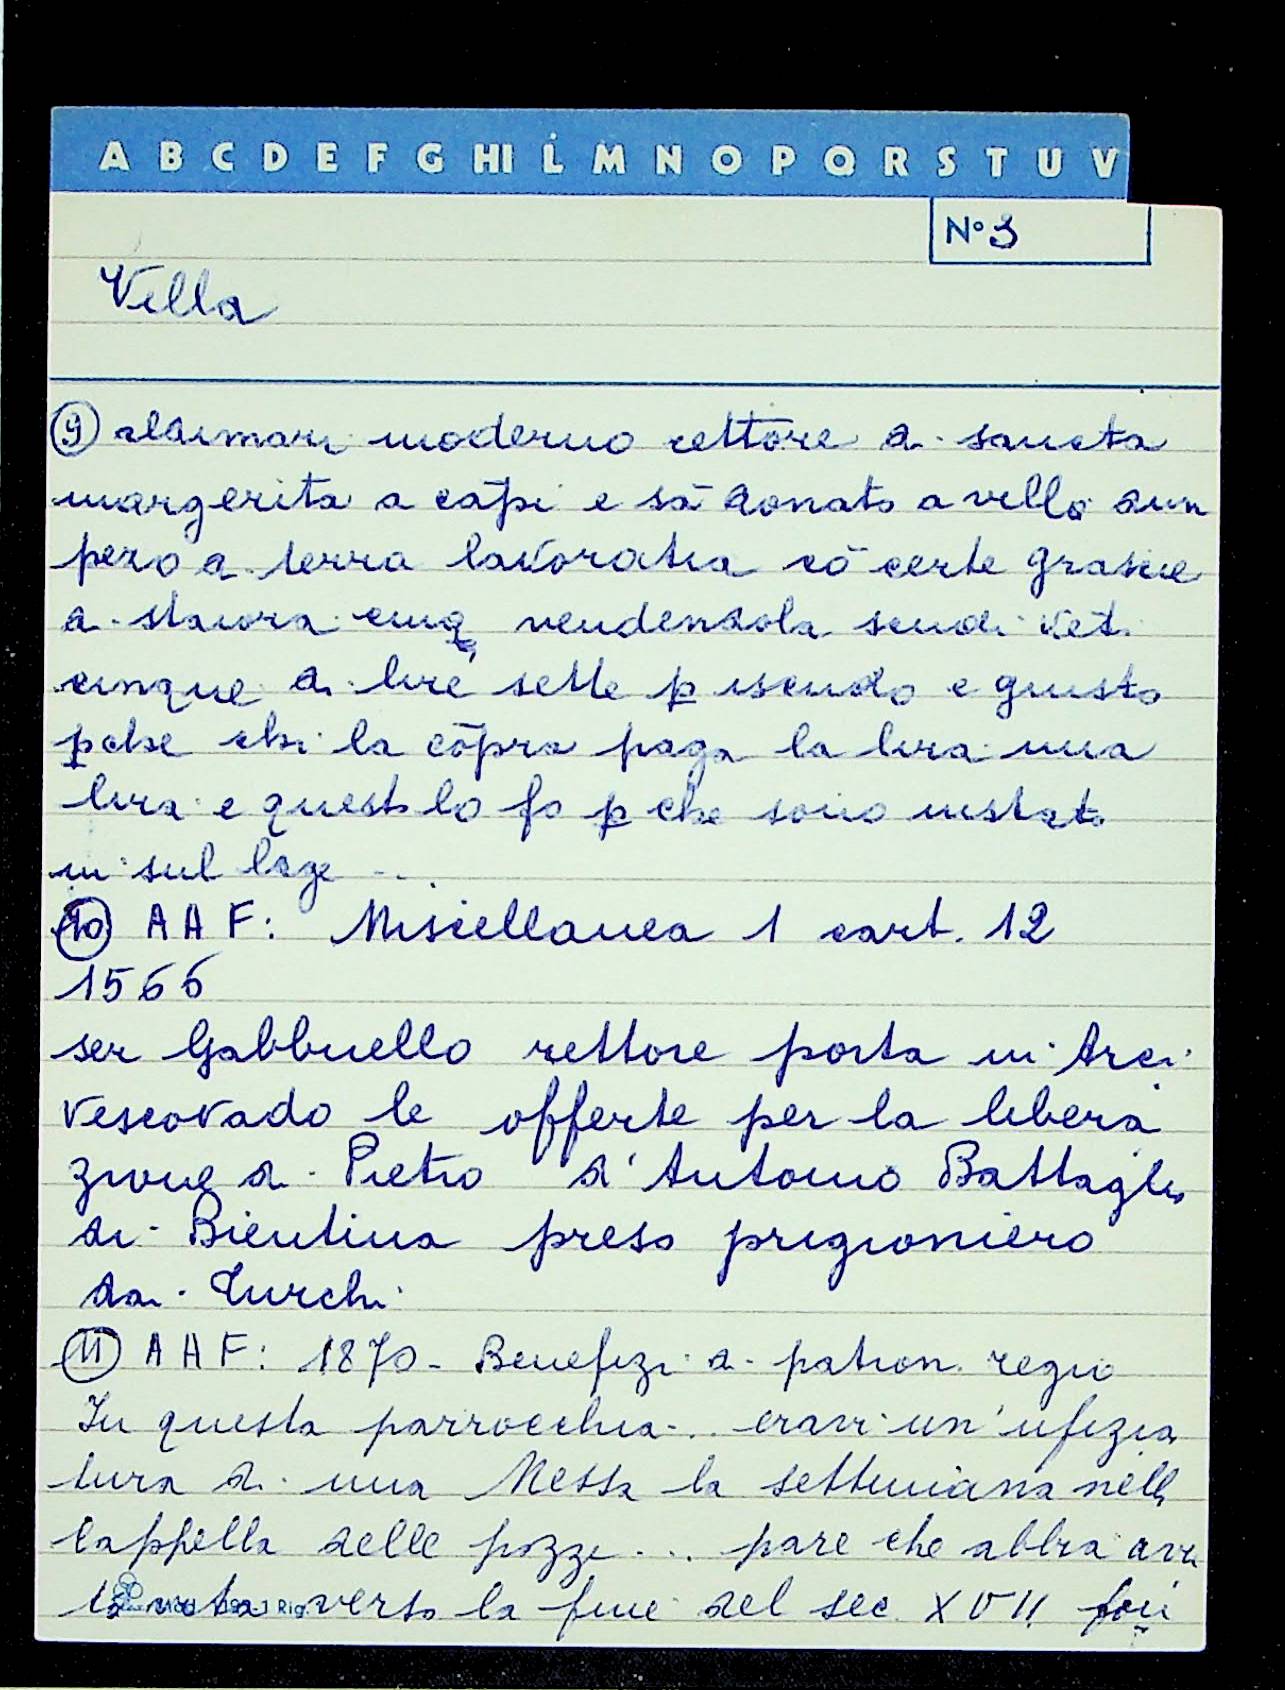 A B C D E F G HI L M N O P Q R S T U V
N° 3
Villa
9 aldimari moderno rettore di sancta
margerita a cāpi e sā donato a villa d'un
pezo di terra lavoratia cō certe grasce
di staiora cinq vendendola scudi vēti
cinque di lire sette p iscudo e giusto
pche chi la cōpra paga la lira una
lira e questo lo fo p che sono instato
in sul lage ...
10 A A F: Miscellanea 1 cart. 12
1566
ser Gabbriello rettore porta in Arci
vescovado le offerte per la libera
zione di Pietro d'Antonio Battaglia
di Bientina preso prigioniero
dai Turchi
11 A A F: 1870 - Benefizi di patron. regio
In questa parrocchia... eravi un'ufizia
tura di una Messa la settimana nella
Cappella delle pozze... pare che abbia avu
to vita verso la fine del sec. XVII